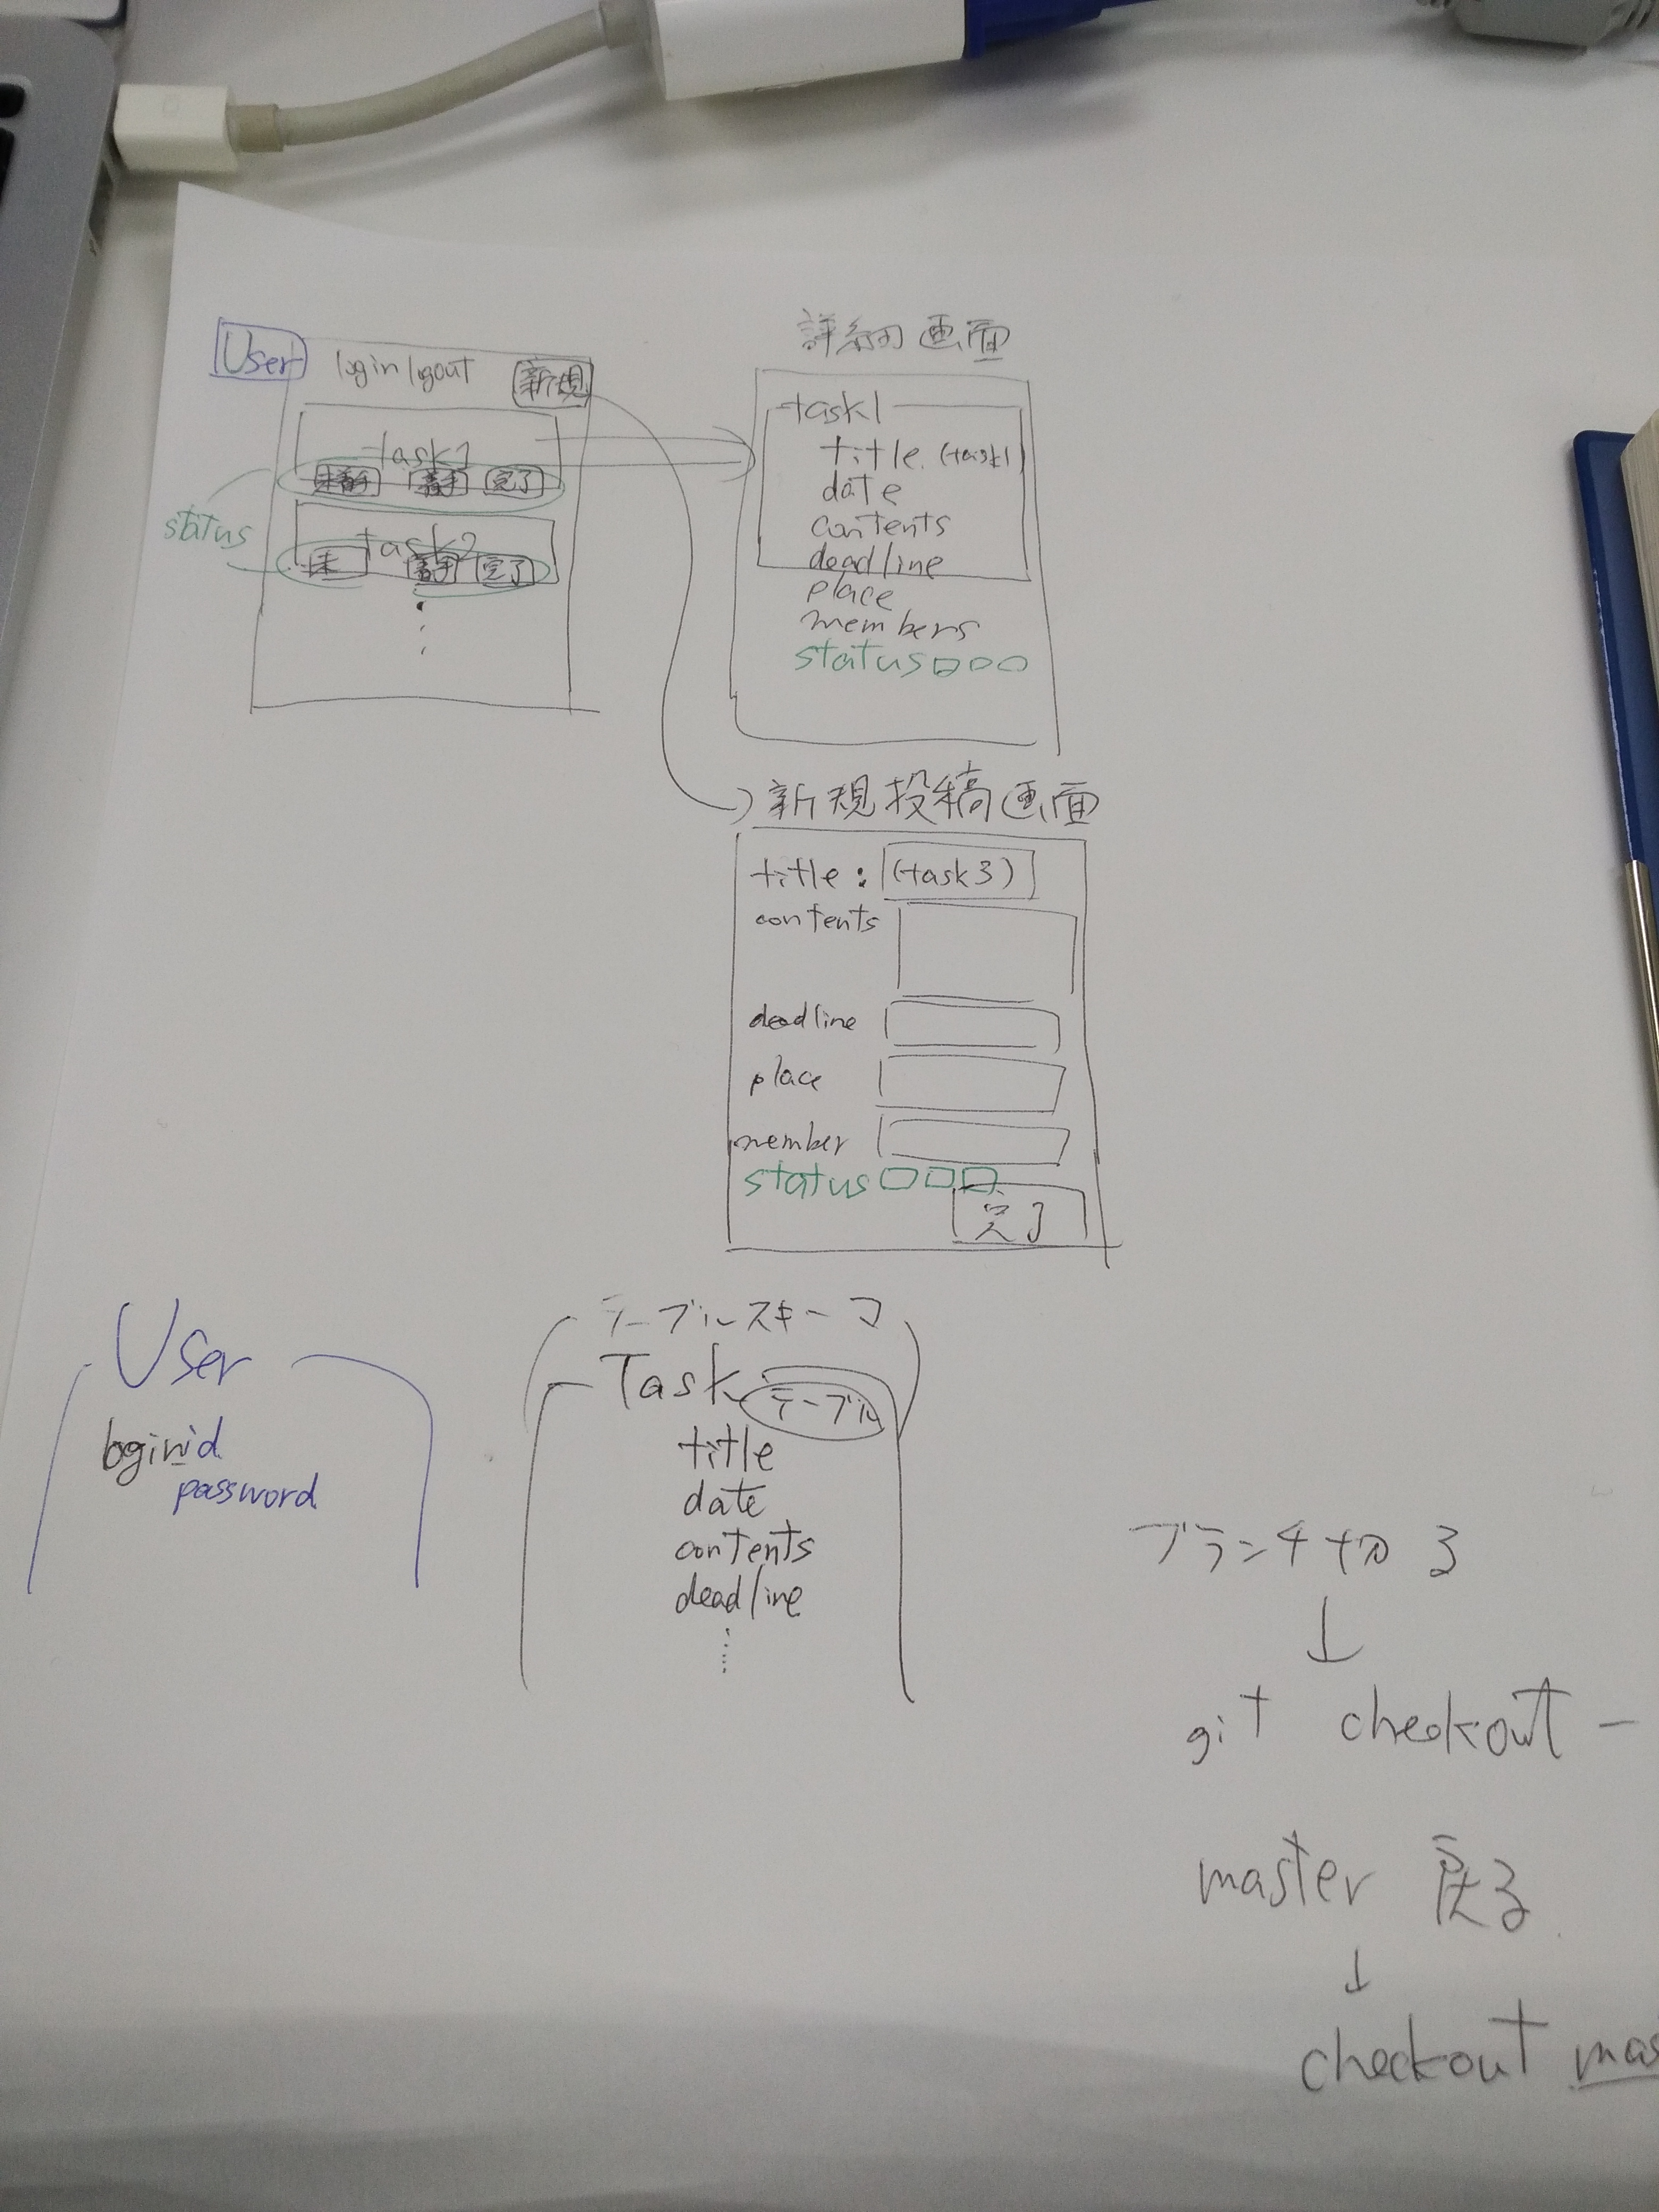 User login logout 新規
task1
未着手 着手 完了
status
task2
未 着手 完了
詳細画面
task1
title (task1)
date
contents
deadline
place
members
status
新規投稿画面
title : (task3)
contents
deadline
place
member
status
完了
User
loginid
password
テーブルスキーマ
Task テーブル
title
date
contents
deadline
ブランチ切る
↓
git checkout -
master 戻る
↓
checkout mas